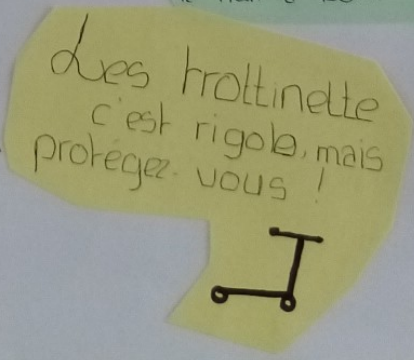 Les trottinette
c'est rigolo, mais
protégez-vous !